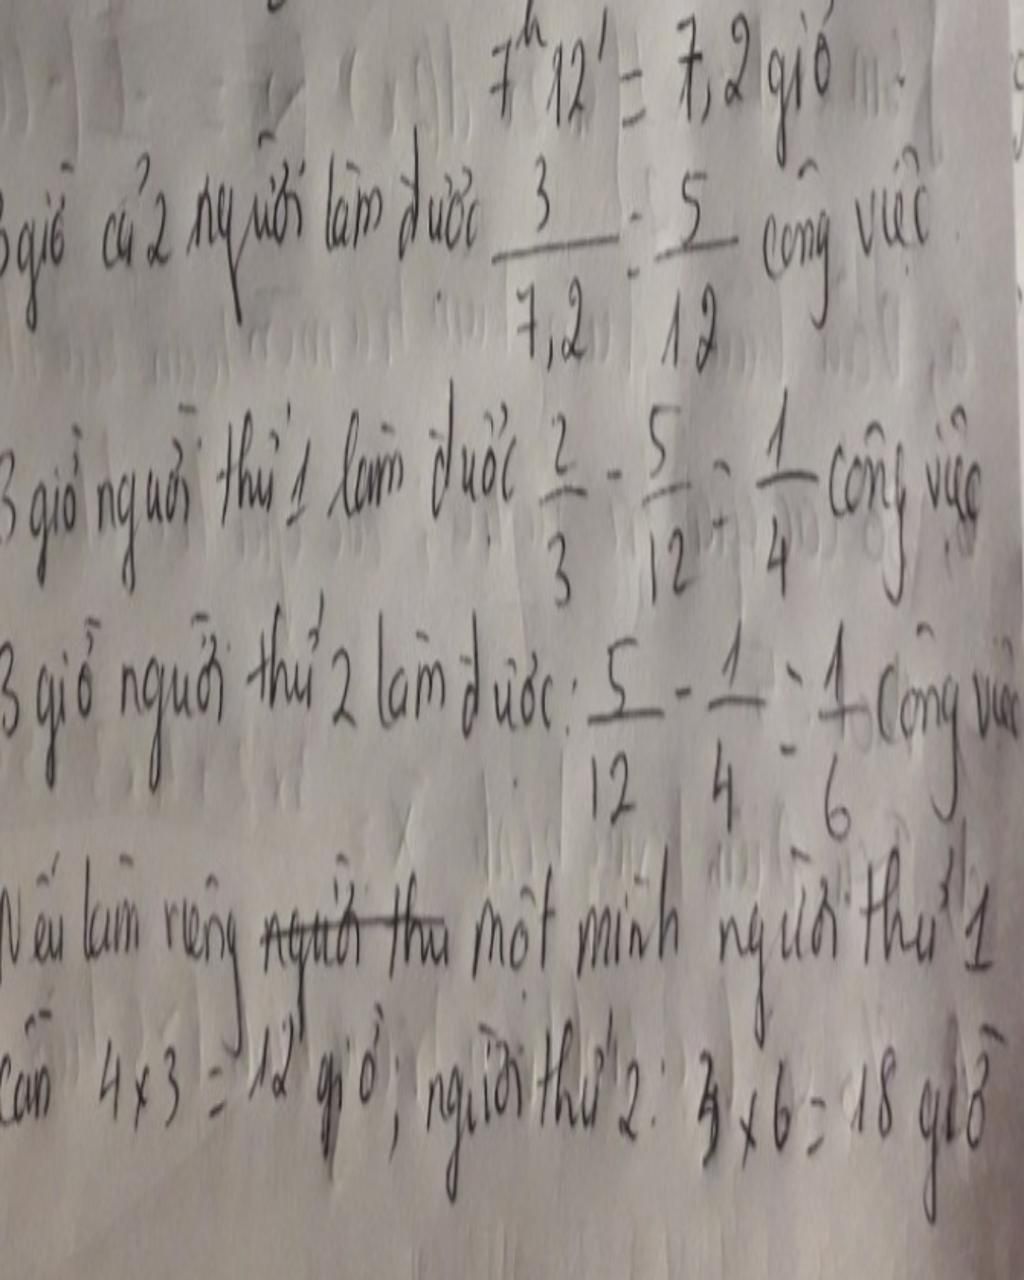 7h12' = 7,2 giờ
3 giờ cả 2 người làm được 3/7,2 = 5/12 công việc
3 giờ người thứ 1 làm được 2/3 - 5/12 = 1/4 công việc
3 giờ người thứ 2 làm được: 5/12 - 1/4 = 1/6 công việc
Nếu làm riêng một mình người thứ 1
cần 4x3 = 12 giờ; người thứ 2: 3x6 = 18 giờ